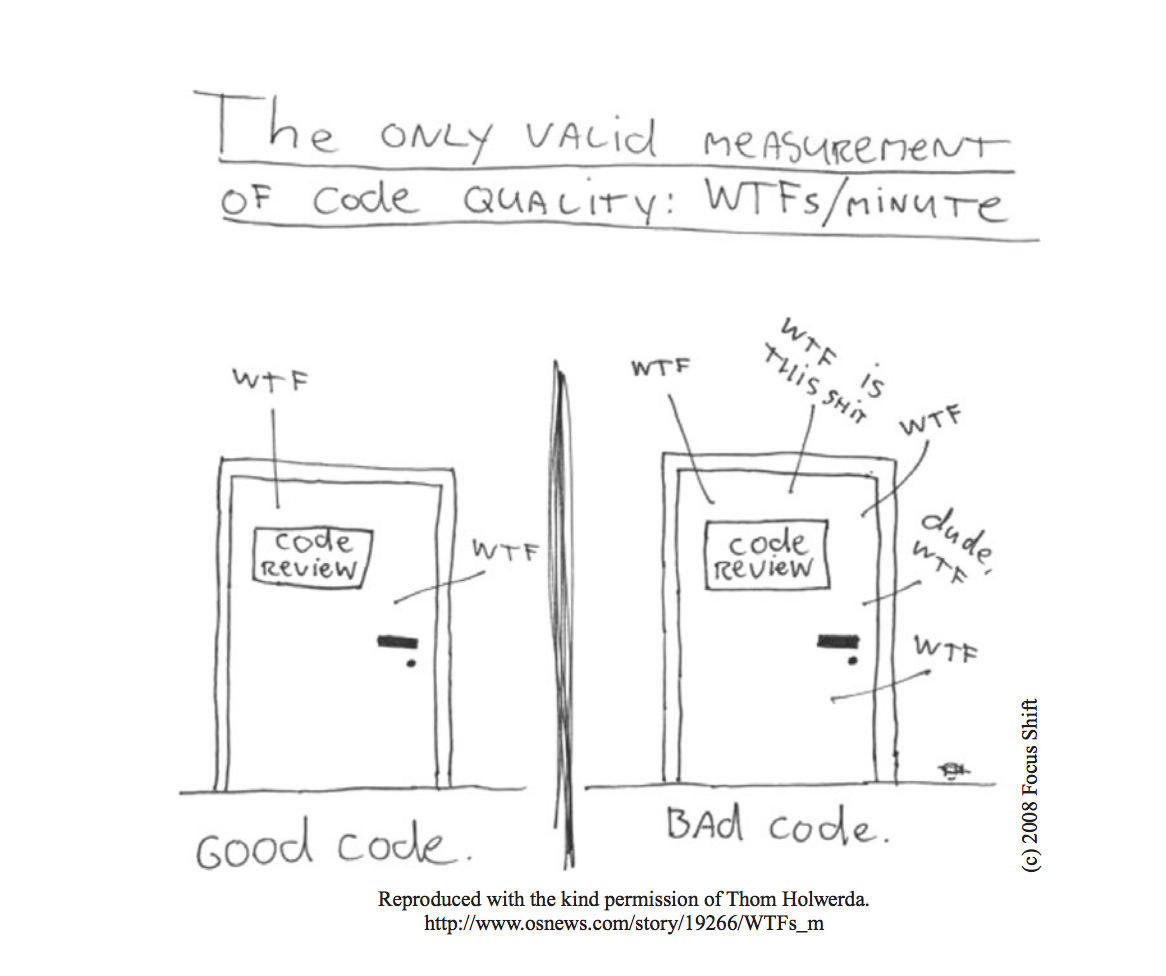 The ONLY VALid MEASUREMENT
OF Code QUALITY: WTFs/MINUTE
WTF
code
REVIEW
WTF
Good code.
WTF
WTF iS
THiS SHiT
WTF
code
REVIEW
dude,
WTF
WTF
BAd code.
(c) 2008 Focus Shift
Reproduced with the kind permission of Thom Holwerda.
http://www.osnews.com/story/19266/WTFs_m